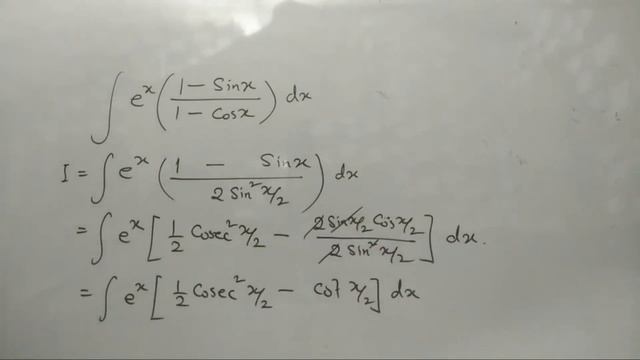 ∫ e^x ( (1 - Sinx) / (1 - Cosx) ) dx
I = ∫ e^x ( (1 - Sinx) / (2 Sin² x/2) ) dx
= ∫ e^x [ 1/2 Cosec² x/2 - (2 Sin x/2 Cos x/2) / (2 Sin² x/2) ] dx.
= ∫ e^x [ 1/2 Cosec² x/2 - Cot x/2 ] dx